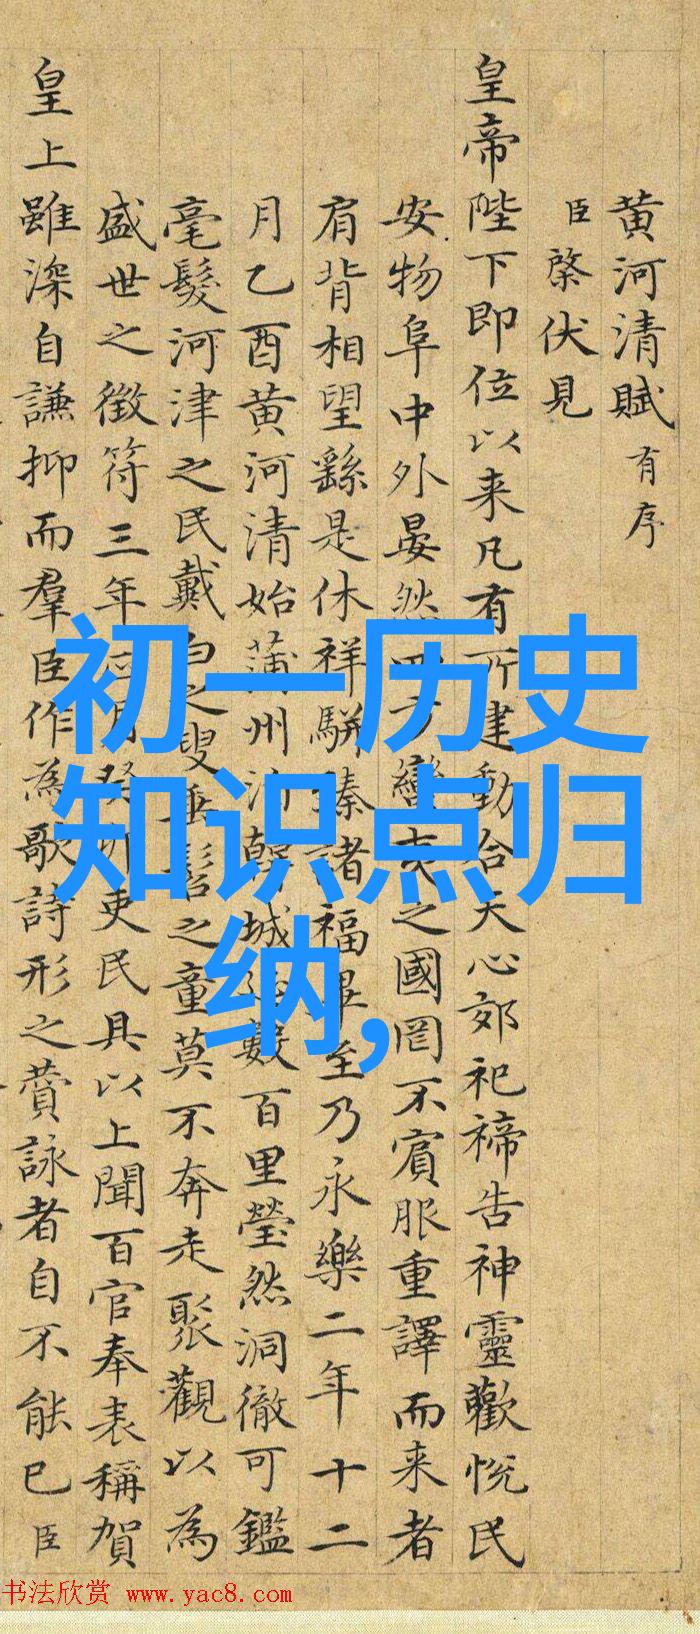 黄河清賦有序
臣棨伏見
皇帝陛下即位以来凡有所建動合天心郊祀禘告神靈歡悅民
安物阜中外晏然四方蠻夷之國罔不賓服重譯而来者
肩背相望繇是休祥駢臻諸福畢至乃永樂二年十二
月乙酉黄河清始蒲州沂韓城延數百里瑩然洞徹可鑑
毫髮河津之民戴白之叟垂髫之童莫不奔走聚觀以為
盛世之徵符三年正月癸卯吏民具以上聞百官奉表稱賀
皇上雖深自謙抑而羣臣作為歌詩形之賛詠者自不能已臣
初一历史
知识点归
纳,
书法欣赏 www.yac8.com